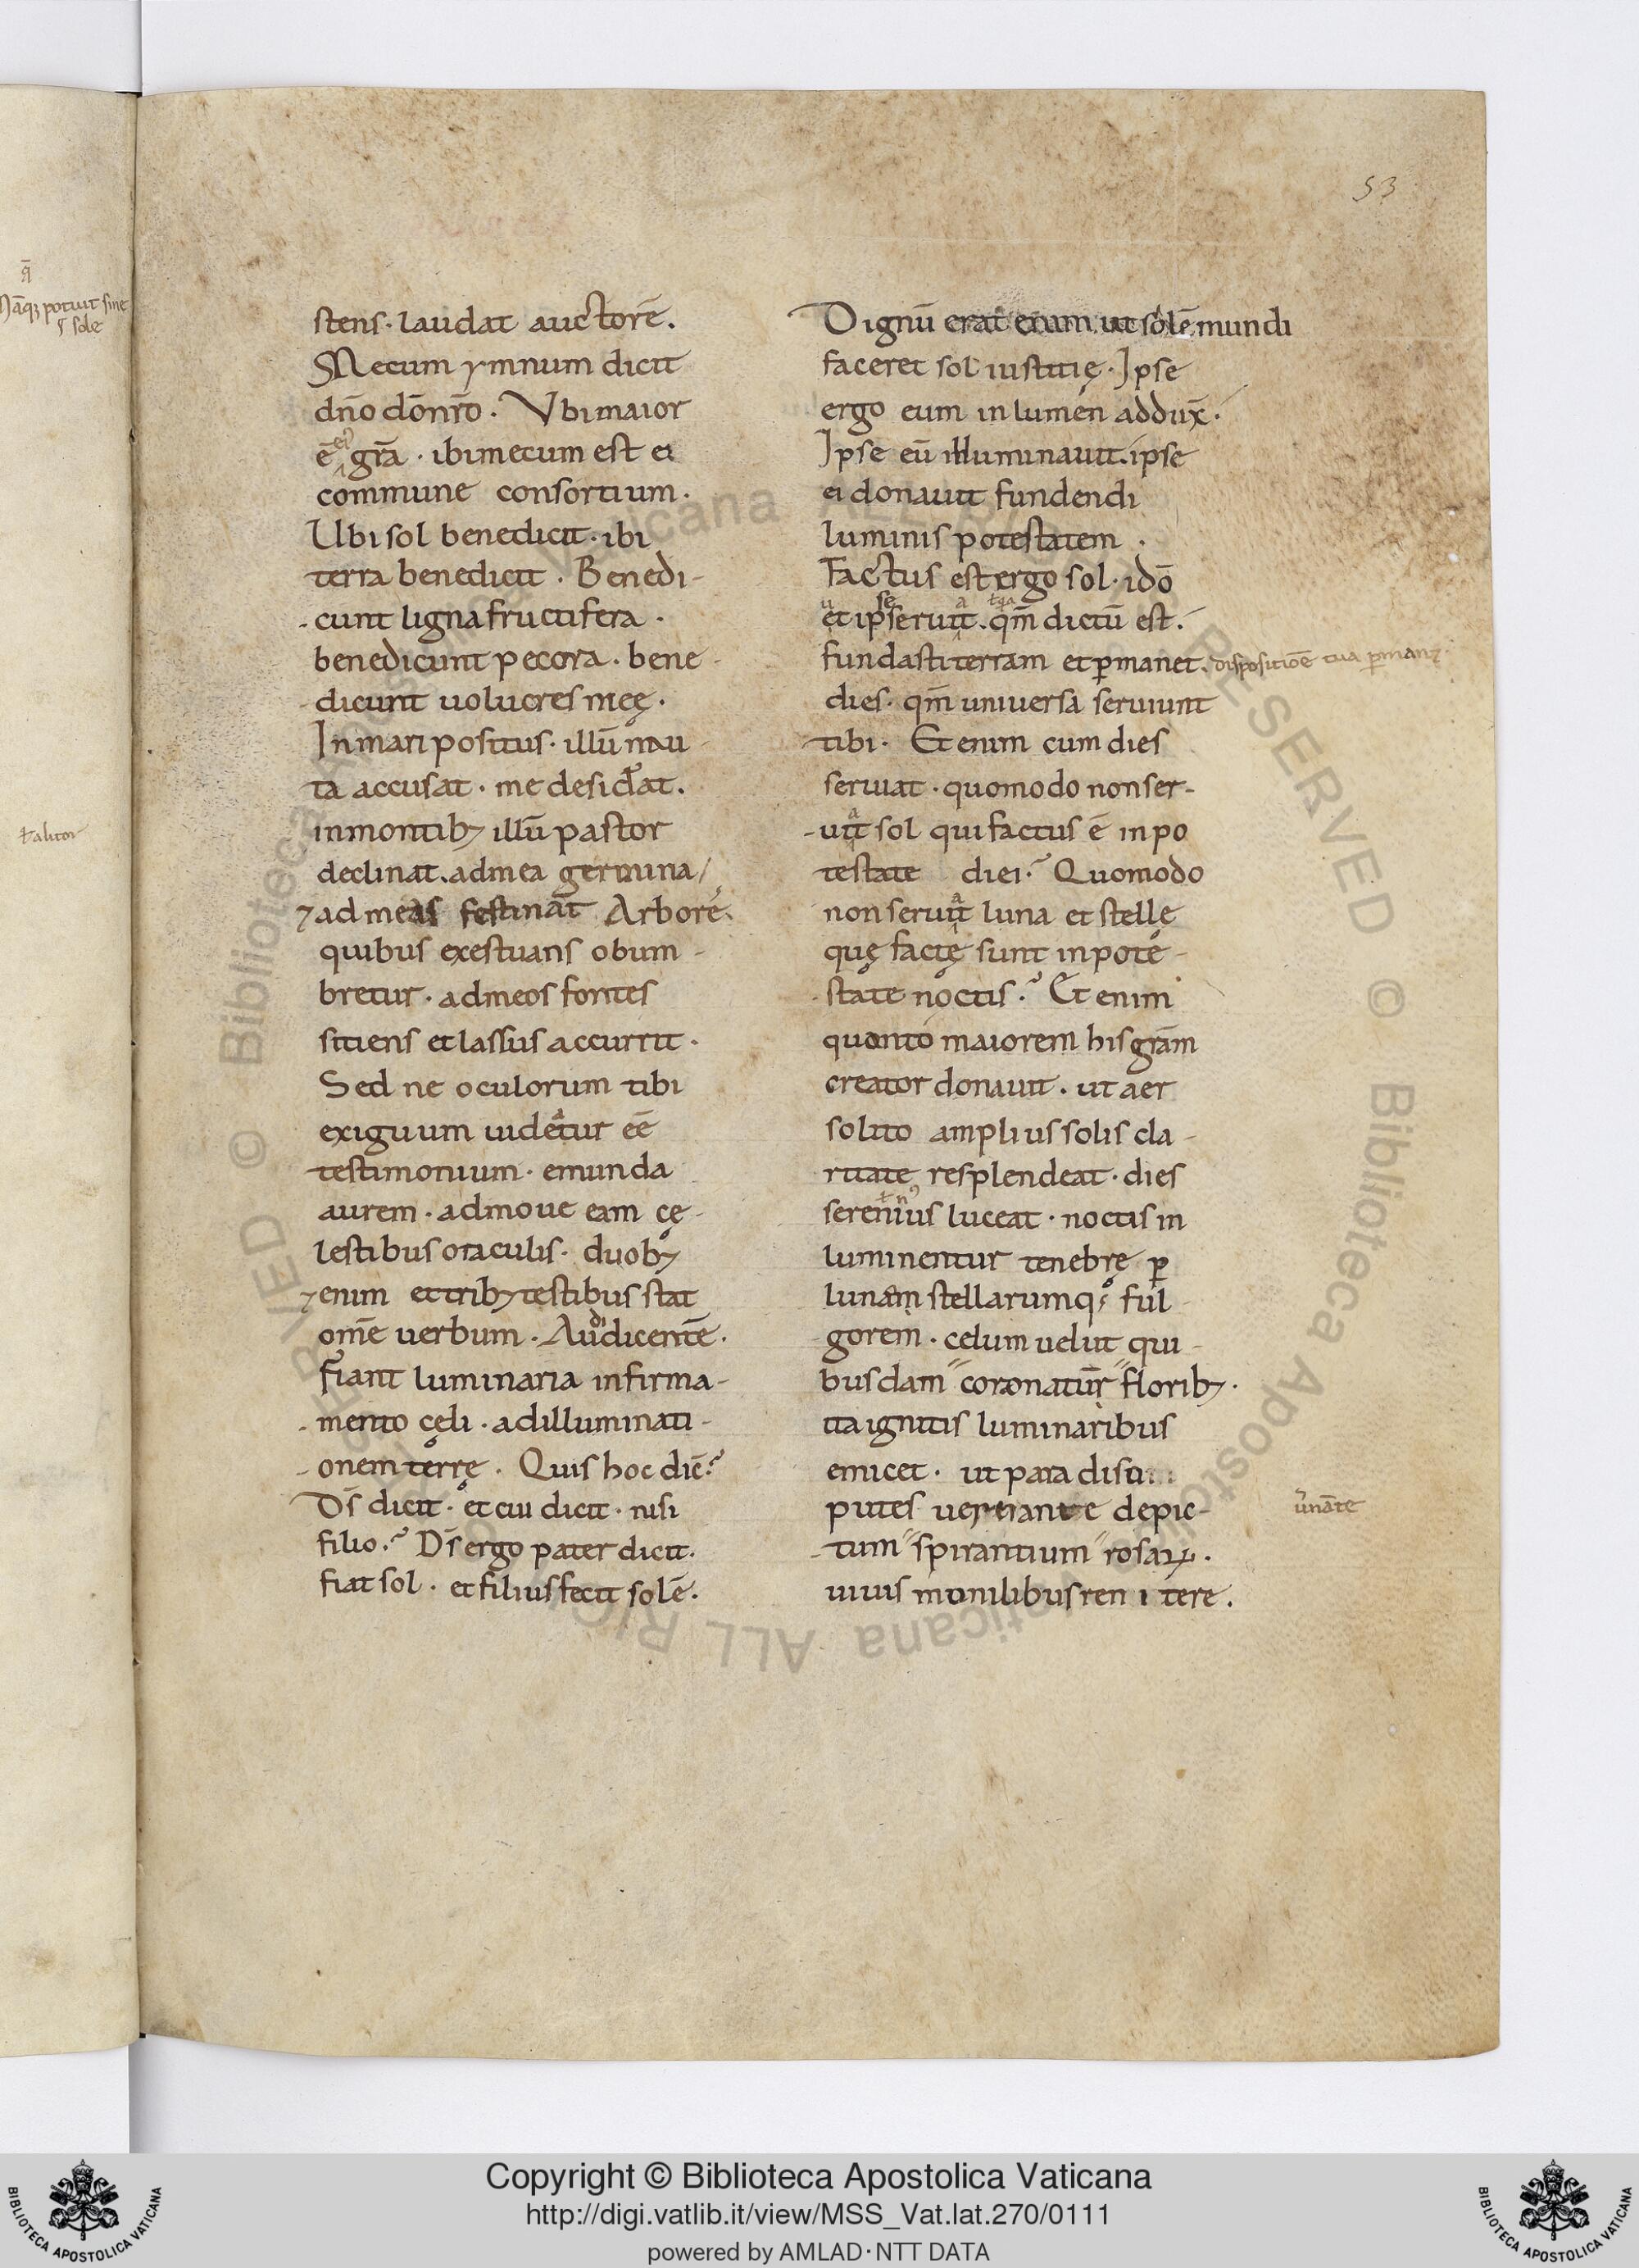 53
stens. laudat auctorē.
Mecum ymnum dicit
dn̄o dōnr̄o. Vbi maior
ē ei' gr̄a. ibi mecum est ei
commune consortium.
Ubi sol benedicit. ibi
terra benedicit. Benedi-
cunt ligna fructifera.
benedicunt pecora. bene-
dicunt uolucres meę.
In mari positus. illū nau-
ta accusat. me desid̄at.
in montib; illū pastor
declinat. ad mea germina/
⁊ ad meas festināt Arbore.
quibus exestuans obum-
bretur. ad meos fontes
sitiens et lassus accurrit.
Sed ne oculorum tibi
exiguum uidetur eē
testimonium. emunda
aurem. admoue eam cę-
lestibus oraculis. duob;
⁊ enim et trib; testibus stat
om̄e uerbum. Audi dicentē.
fiant luminaria in firma-
mento cęli. ad illuminati-
onem terrę. Quis hoc dic̄?
Ds̄ dicit. et cui dicit. nisi
filio? Ds̄ ergo pater dicit.
fiat sol. et filius fecit solē.
Dignū erat enim ut solē mundi
faceret sol iustitię. Ipse
ergo eum in lumen addux̄.
Ipse eū illuminauit. ipse
ei donauit fundendi
luminis potestatem.
Factus est ergo sol. idō
et ipse seruit. qm̄ dictū est.
fundasti terram et p̄manet. dispositiōe tua p̄man&
dies. qm̄ uniuersa seruiunt
tibi. Et enim cum dies
seruiat. quomodo non ser-
uit sol qui factus ē in po
testate diei? Quomodo
non seruit luna et stellę
quę factę sunt in pote-
state noctis? Et enim
quanto maiorem his gr̄am
creator donauit. ut aer
solito amplius solis cla-
ritate resplendeat. dies
serenius luceat. noctis in
luminentur tenebrę p̄
lunam stellarumq; ful-
gorem. celum uelut qui-
busdam coronatur florib;.
ita ignitis luminaribus
emicet. ut paradisu
putes uernante depic-
u̅nāte
tum spirantium rosaꝝ.
uiuis monilibus renitere.
Copyright © Biblioteca Apostolica Vaticana
http://digi.vatlib.it/view/MSS_Vat.lat.270/0111
powered by AMLAD·NTT DATA
BIBLIOTECA APOSTOLICA VATICANA
BIBLIOTECA APOSTOLICA VATICANA